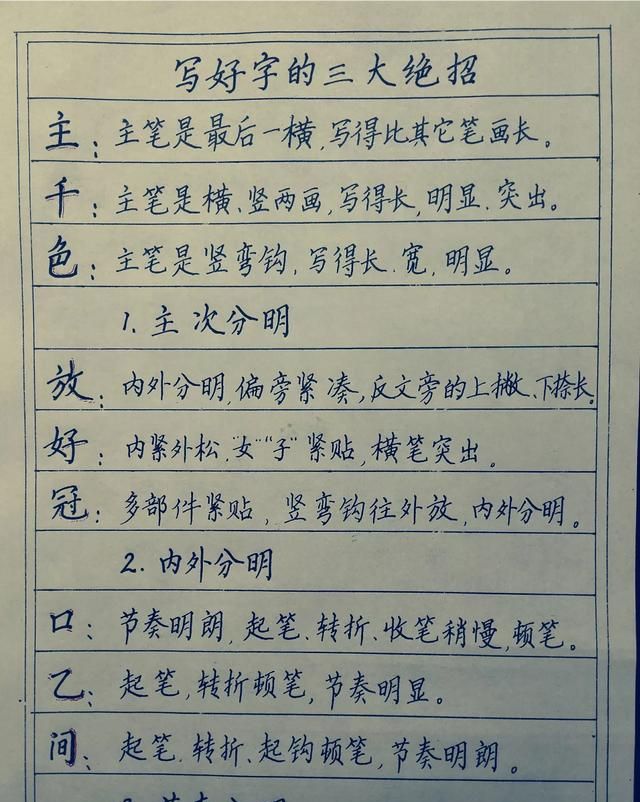 写好字的三大绝招
主：主笔是最后一横，写得比其它笔画长。
千：主笔是横、竖两画，写得长，明显、突出。
色：主笔是竖弯钩，写得长、宽，明显。
1. 主次分明
放：内外分明，偏旁紧凑，反文旁的上撇、下捺长。
好：内紧外松，“女”“子”紧贴，横笔突出。
冠：多部件紧贴，竖弯钩往外放，内外分明。
2. 内外分明
口：节奏明朗，起笔、转折、收笔稍慢，顿笔。
乙：起笔，转折顿笔，节奏明显。
间：起笔、转折、起钩顿笔，节奏明朗。